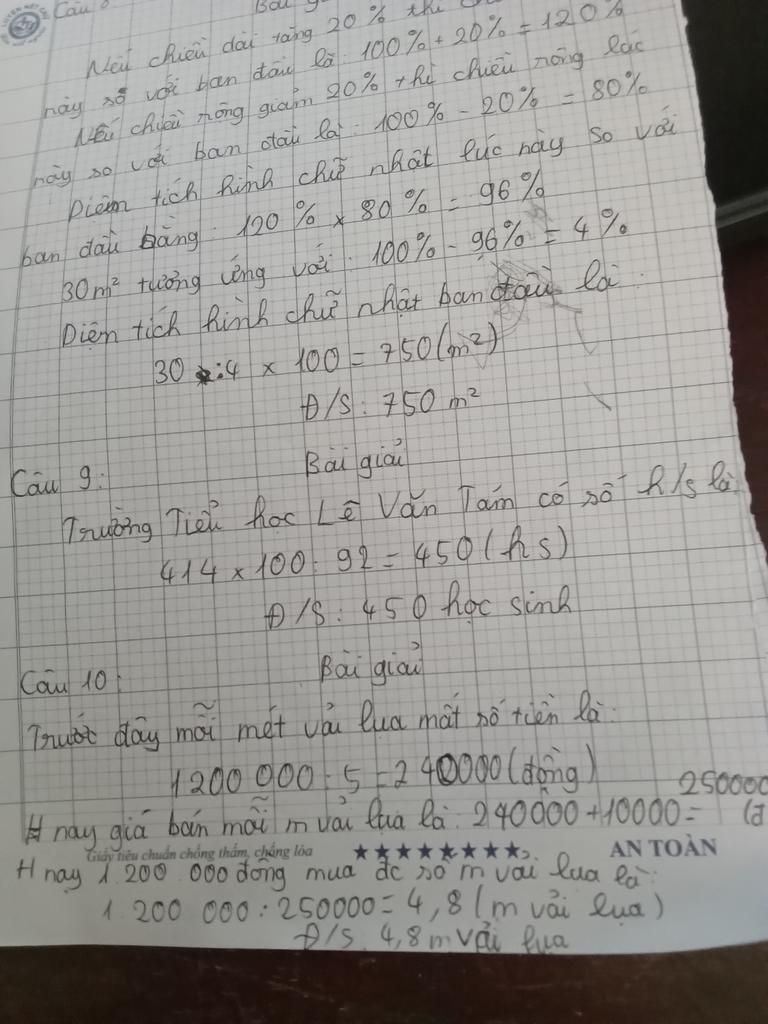 Câu 8
Bài g
Nếu chiều dài tăng 20% thì
này số với ban đầu là: 100% + 20% = 120%
Nếu chiều rộng giảm 20% thì chiều rộng lúc
này so với ban đầu là: 100% - 20% = 80%
Diện tích hình chữ nhật lúc này so với
ban đầu bằng: 120% x 80% = 96%
30m² tương ứng với: 100% - 96% = 4%
Diện tích hình chữ nhật ban đầu là:
30 : 4 x 100 = 750 (m²)
Đ/S: 750 m²
Câu 9: Bài giải
Trường Tiểu học Lê Văn Tám có số h/s là
414 x 100 : 92 = 450 (hs)
Đ/S: 450 học sinh
Câu 10: Bài giải
Trước đây mỗi mét vải lụa mất số tiền là:
1200 000 : 5 = 240000 (đồng)
H nay giá bán mỗi m vải lụa là: 240000 + 10000 = 250000 (đ
Giấy tiêu chuẩn chống thấm, chống lóa ★★★★★★★★ AN TOÀN
H nay 1.200 000 đồng mua đc số m vải lụa là:
1.200 000 : 250000 = 4,8 (m vải lụa)
Đ/S 4,8 m vải lụa